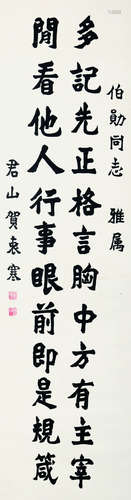 伯勛同志 雅属
多記先正格言胸中方有主宰
閒看他人行事眼前即是規箴
君山賀袁寒